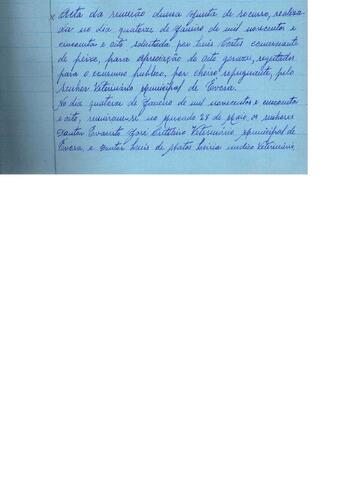 Acta da reunião duma Junta de recurso, realiza-
da no dia quatorze de Janeiro de mil novecentos e
cincoenta e oito solicitada por Luis Cortes comerciante
de peixe, para apreciação de oito gorazes, regeitados
para o consumo publico, por cheiro repugnante, pelo
senhor Veterinário Municipal de Evora.
No dia quatorze de Janeiro de mil novecentos e cincoenta
e oito, reuniram-se no mercado 28 de Maio, os senhores
Doutor Evaristo José Veterinário Municipal de
Evora, e Doutor Luis de Matos médico Veterinário,